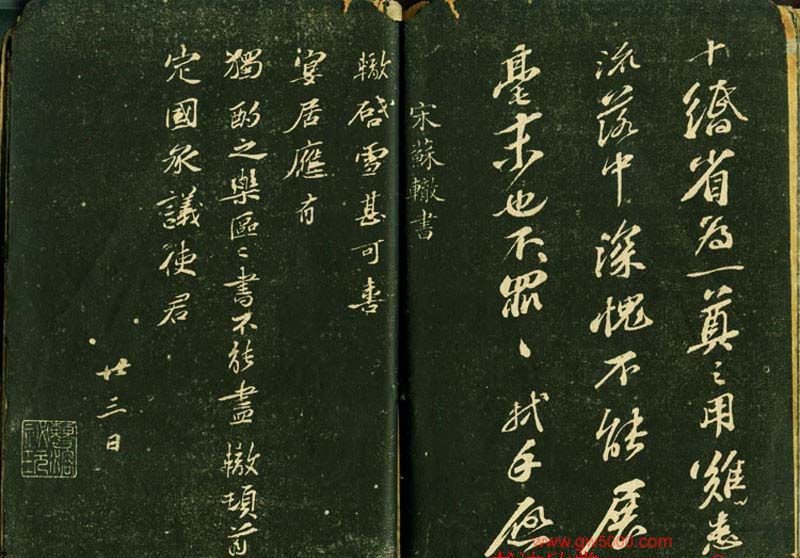 十緡省為一奠〻用雖患
流落中深愧不能展
毫末也不罪〻軾手啟
宋蘇轍書
轍啓雪甚可喜
宴居應有
獨酌之樂區〻書不能盡轍頓首
定國承議使君
廿三日